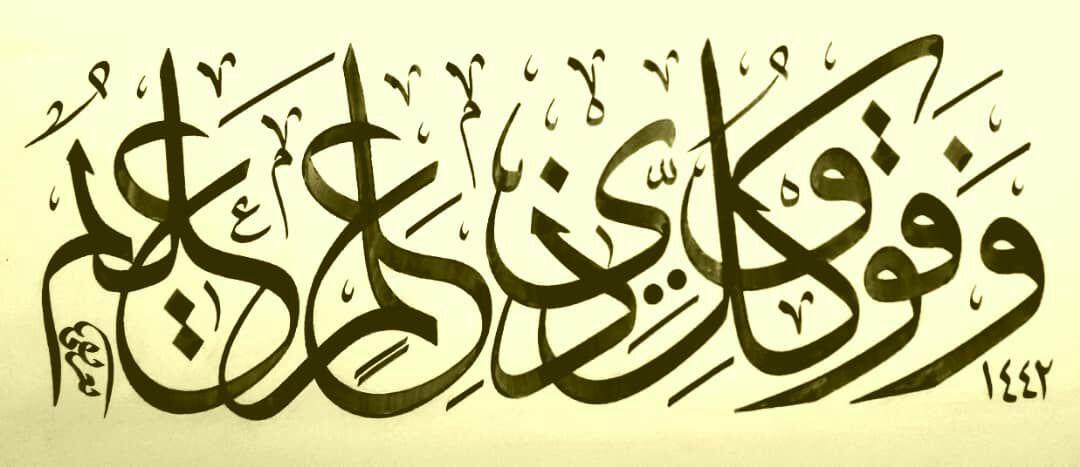 وَفَوْقَ كُلِّ ذِي عِلْمٍ عَلِيمٌ
١٤٤٢